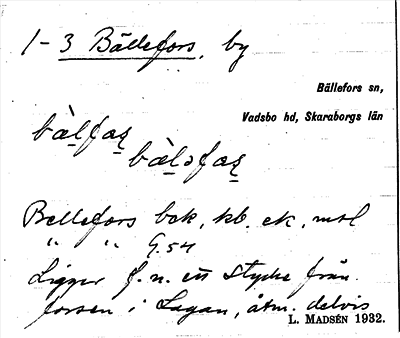 1-3 Bällefors, by
Bällefors sn,
Vadsbo hd, Skaraborgs län
bàlfaʂ
bàləfaʂ
Bellefors bck, kb. ek, msl
" " G.54
Ligger f. n. ett stycke från
forsen i Lagan, åtm. delvis
L. MADSÉN 1932.